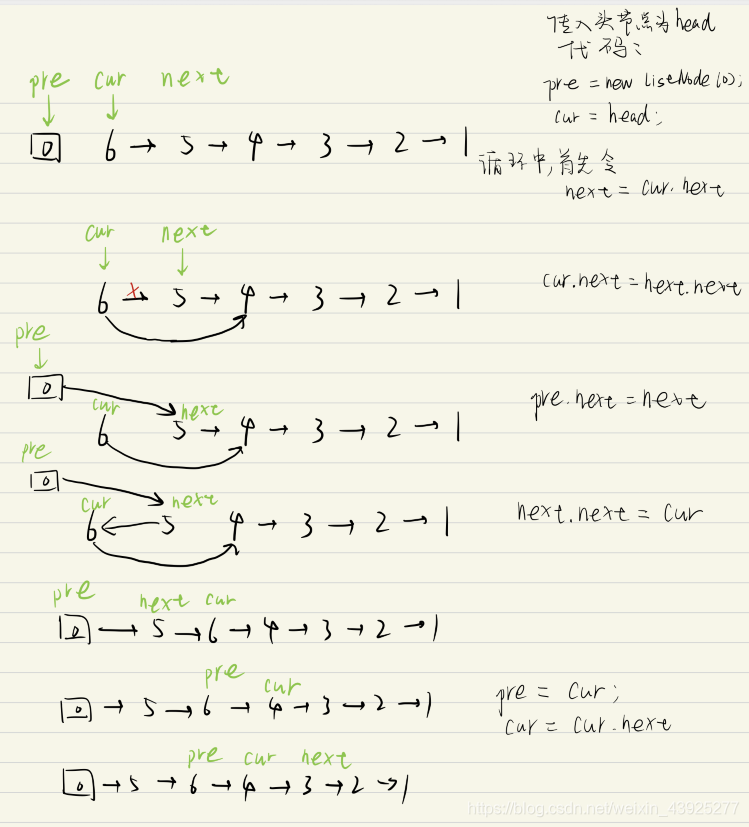 传入头节点为head
代码:
pre = new ListNode(0);
cur = head;
pre cur next
0 6 → 5 → 4 → 3 → 2 → 1
循环中,首先令
next = cur.next
cur next
6 x→ 5 → 4 → 3 → 2 → 1
cur.next = next.next
pre
0
cur next
6 5 → 4 → 3 → 2 → 1
pre.next = next
pre
0
cur next
6 ← 5 4 → 3 → 2 → 1
next.next = cur
pre next cur
0 → 5 → 6 → 4 → 3 → 2 → 1
pre cur
0 → 5 → 6 → 4 → 3 → 2 → 1
pre = cur;
cur = cur.next
pre cur next
0 → 5 → 6 → 4 → 3 → 2 → 1
https://blog.csdn.net/weixin_43925277